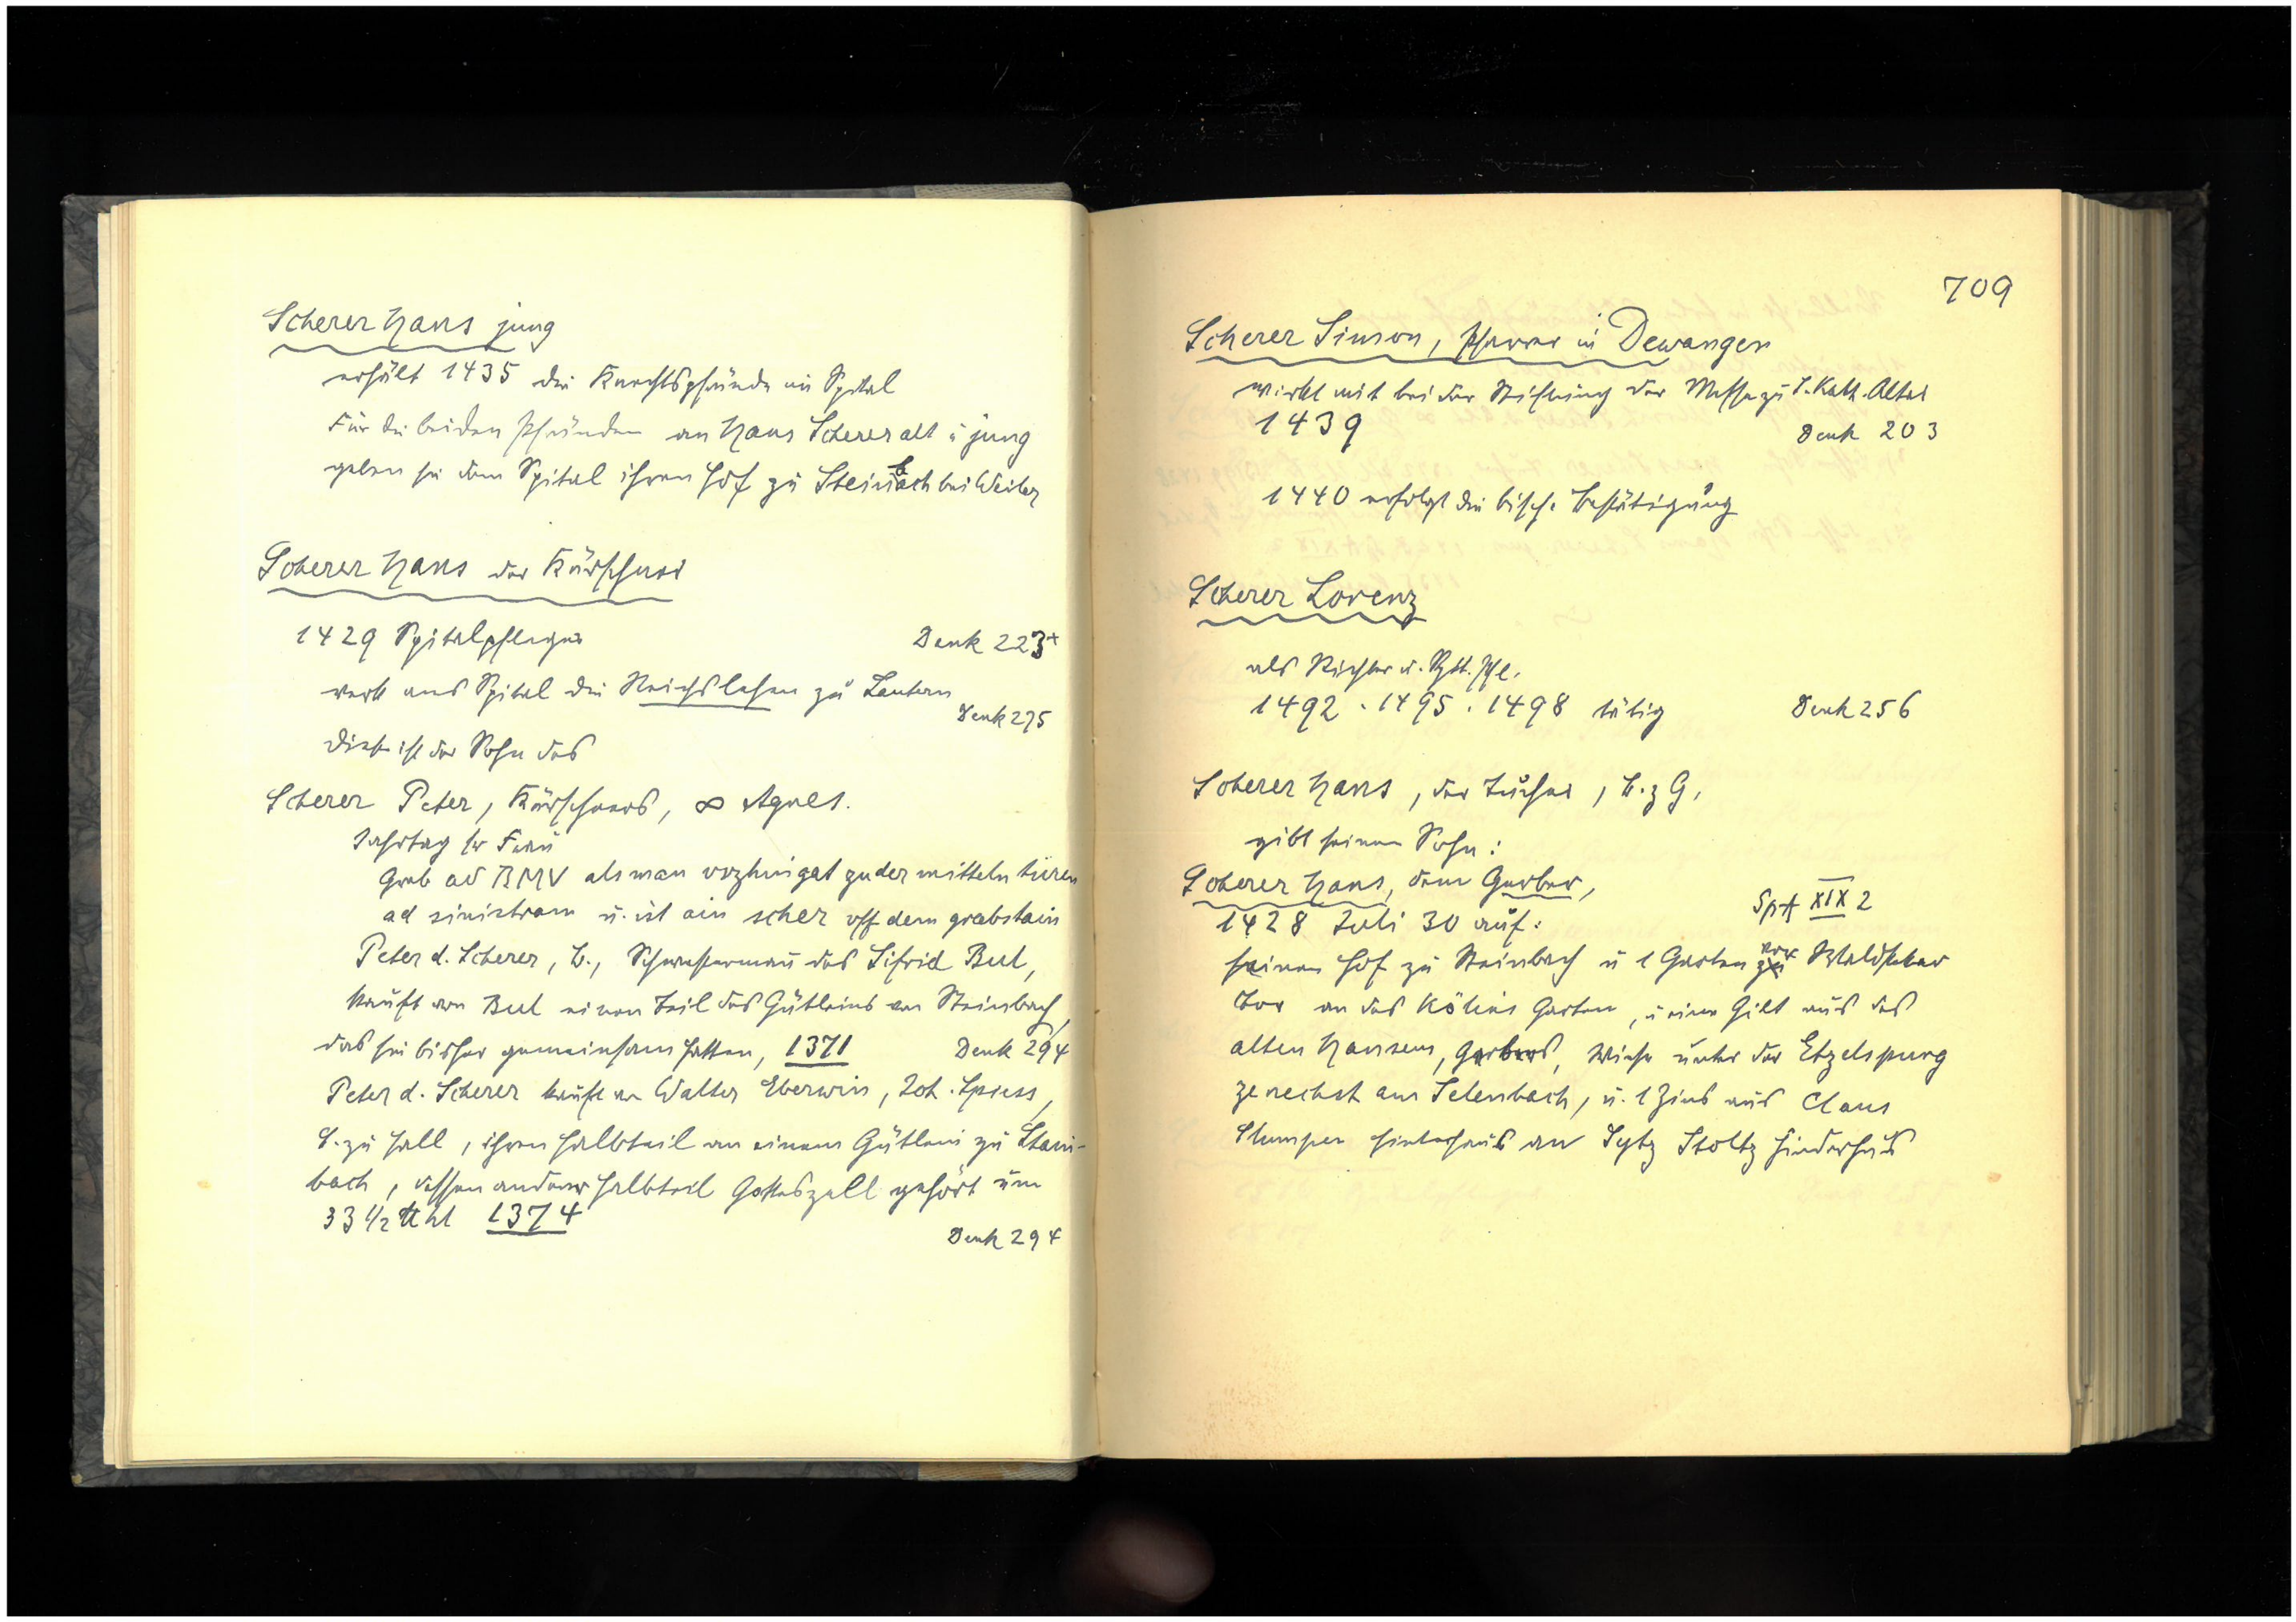 Scherer Hans jung
erhält 1435 die Knechtspfründe im Spital
Für die beiden Pfründen an Hans Scherer alt u jung
geben sie dem Spital ihren Hof zu Steinbach bei Weiler
Scherer Hans der Kürschner
1429 Spitalpfleger Denk 223+
verk ans Spital die Reichslehen zu Lautern
Denk 275
Dieser ist der Sohn des
Scherer Peter, Kürschners, ∞ Agnes.
Jahrtag sr Frau
Grab ad BMV als man vszhin gat zu der mitteln türen
ad sinistram u. ist ain scher vff dem grabstain
Peter d. Scherer, B., Schwestermann des Sifrid Bul,
kauft von Bul einen Teil des Gütleins von Steinbach,
das sie bisher gemeinsam hatten, 1371 Denk 294
Peter d. Scherer kauft von Walter Eberwin, Joh. Spiess,
B. zu Hall, ihren Halbteil an einem Gütlein zu Stain-
bach, dessen anderer Halbteil Gotteszell gehört um
33 1/2 ℔ hl 1374
Denk 294
709
Scherer Simon, Pfarrer in Dewangen
wirkt mit bei der Stiftung der Messe zu S. Kath. Altar
1439 Denk 203
1440 erfolgt die bisch. Bestätigung
Scherer Lorenz
als Richter u. Spit. Pfl.
1492 . 1495 . 1498 tätig Denk 256
Scherer Hans, der Tucher, B. z G,
gibt seinem Sohn:
Scherer Hans, dem Gerber,
SpA XIX 2
1428 Juli 30 auf:
seinen Hof zu Steinbach u 1 Garten vor Waldstetter
Tor an des Kölins Garten, u eine Gilt aus des
alten Hansens, Gerbers, Wiese unter der Etzelspurg
ze nechst am Selenbach, u. 1 Zins aus Claus
Stumpen Hinterhaus an Sytz Stoltz Hinderhus